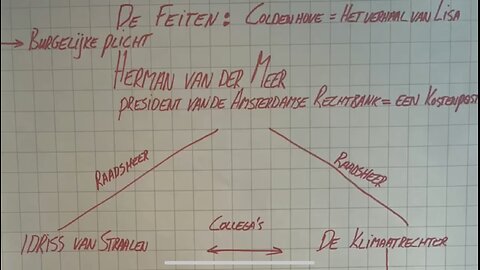 De Feiten: Coldenhove = Het verhaal van Lisa
→ Burgelijke plicht
Herman van der Meer
president van de Amsterdamse Rechtbank = een Kostenpost
Raadsheer
Raadsheer
Collega's
Idriss van Straalen
De Klimaatrechter